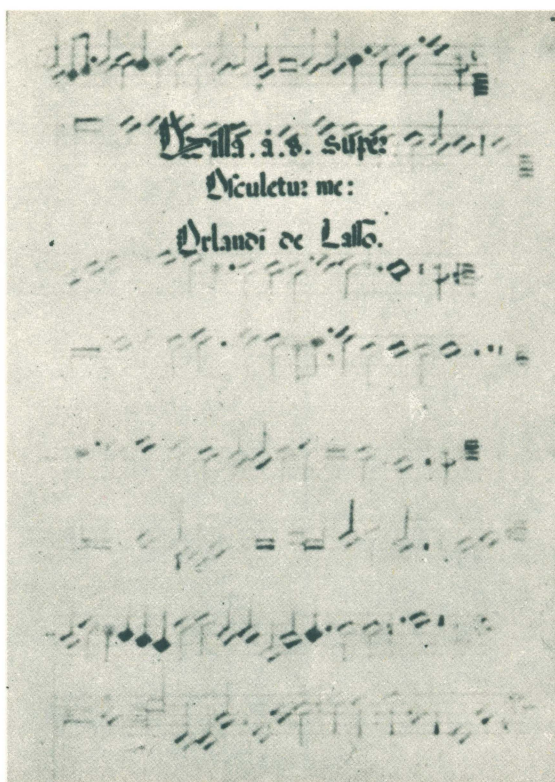 Missa. a. 8. super
Osculetur me:
Orlandi de Lasso.